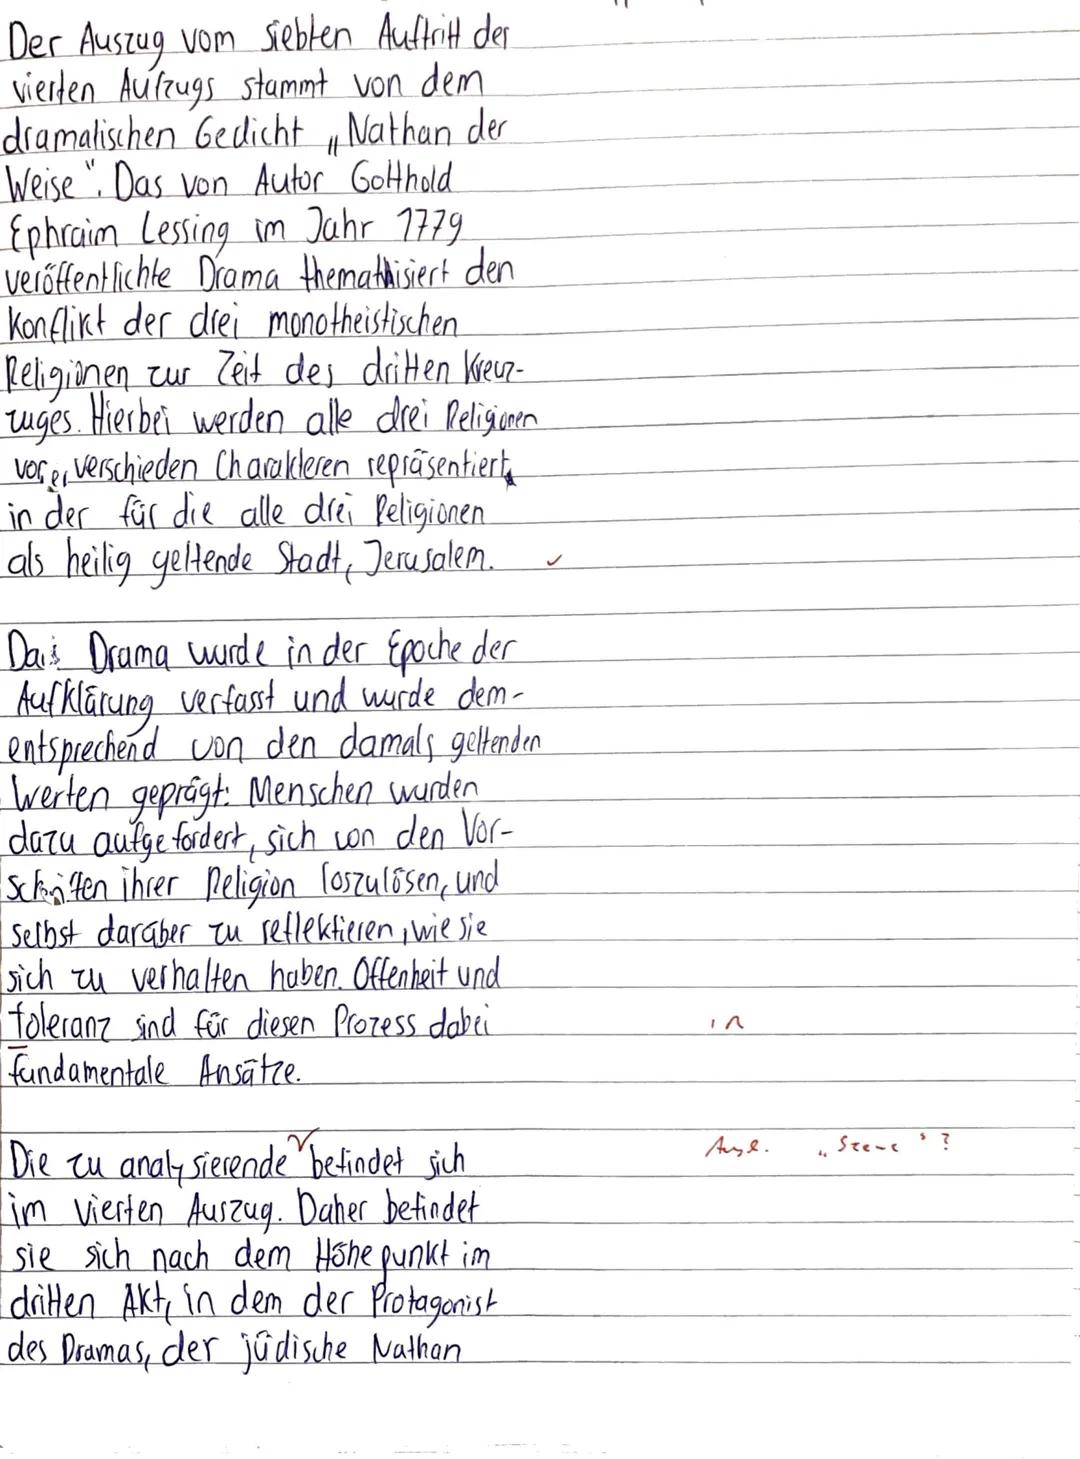 Der Auszug vom siebten Auftritt der
vierten Aufzugs stammt von dem
dramatischen Gedicht „Nathan der
Weise". Das von Autor Gotthold
Ephraim Lessing im Jahr 1779
veröffentlichte Drama themathisiert den
Konflikt der drei monotheistischen
Religionen zur Zeit des dritten Kreuz-
zuges. Hierbei werden alle drei Religionen
verschieden Charakteren repräsentiert,
in der für die alle drei Religionen
als heilig geltende Stadt, Jerusalem. ✓
Das Drama wurde in der Epoche der
Aufklärung verfasst und wurde dem-
entsprechend von den damals geltenden
Werten geprägt: Menschen wurden
dazu aufgefordert, sich von den Vor-
schriften ihrer Religion loszulösen, und
selbst darüber zu reflektieren, wie sie
sich zu verhalten haben. Offenheit und
Toleranz sind für diesen Prozess dabei
fundamentale Ansätze.
Die zu analysierende befindet sich „Szene"?
im vierten Auszug. Daher befindet
sie sich nach dem Höhepunkt im
dritten Akt, in dem der Protagonist
des Dramas, der jüdische Nathan